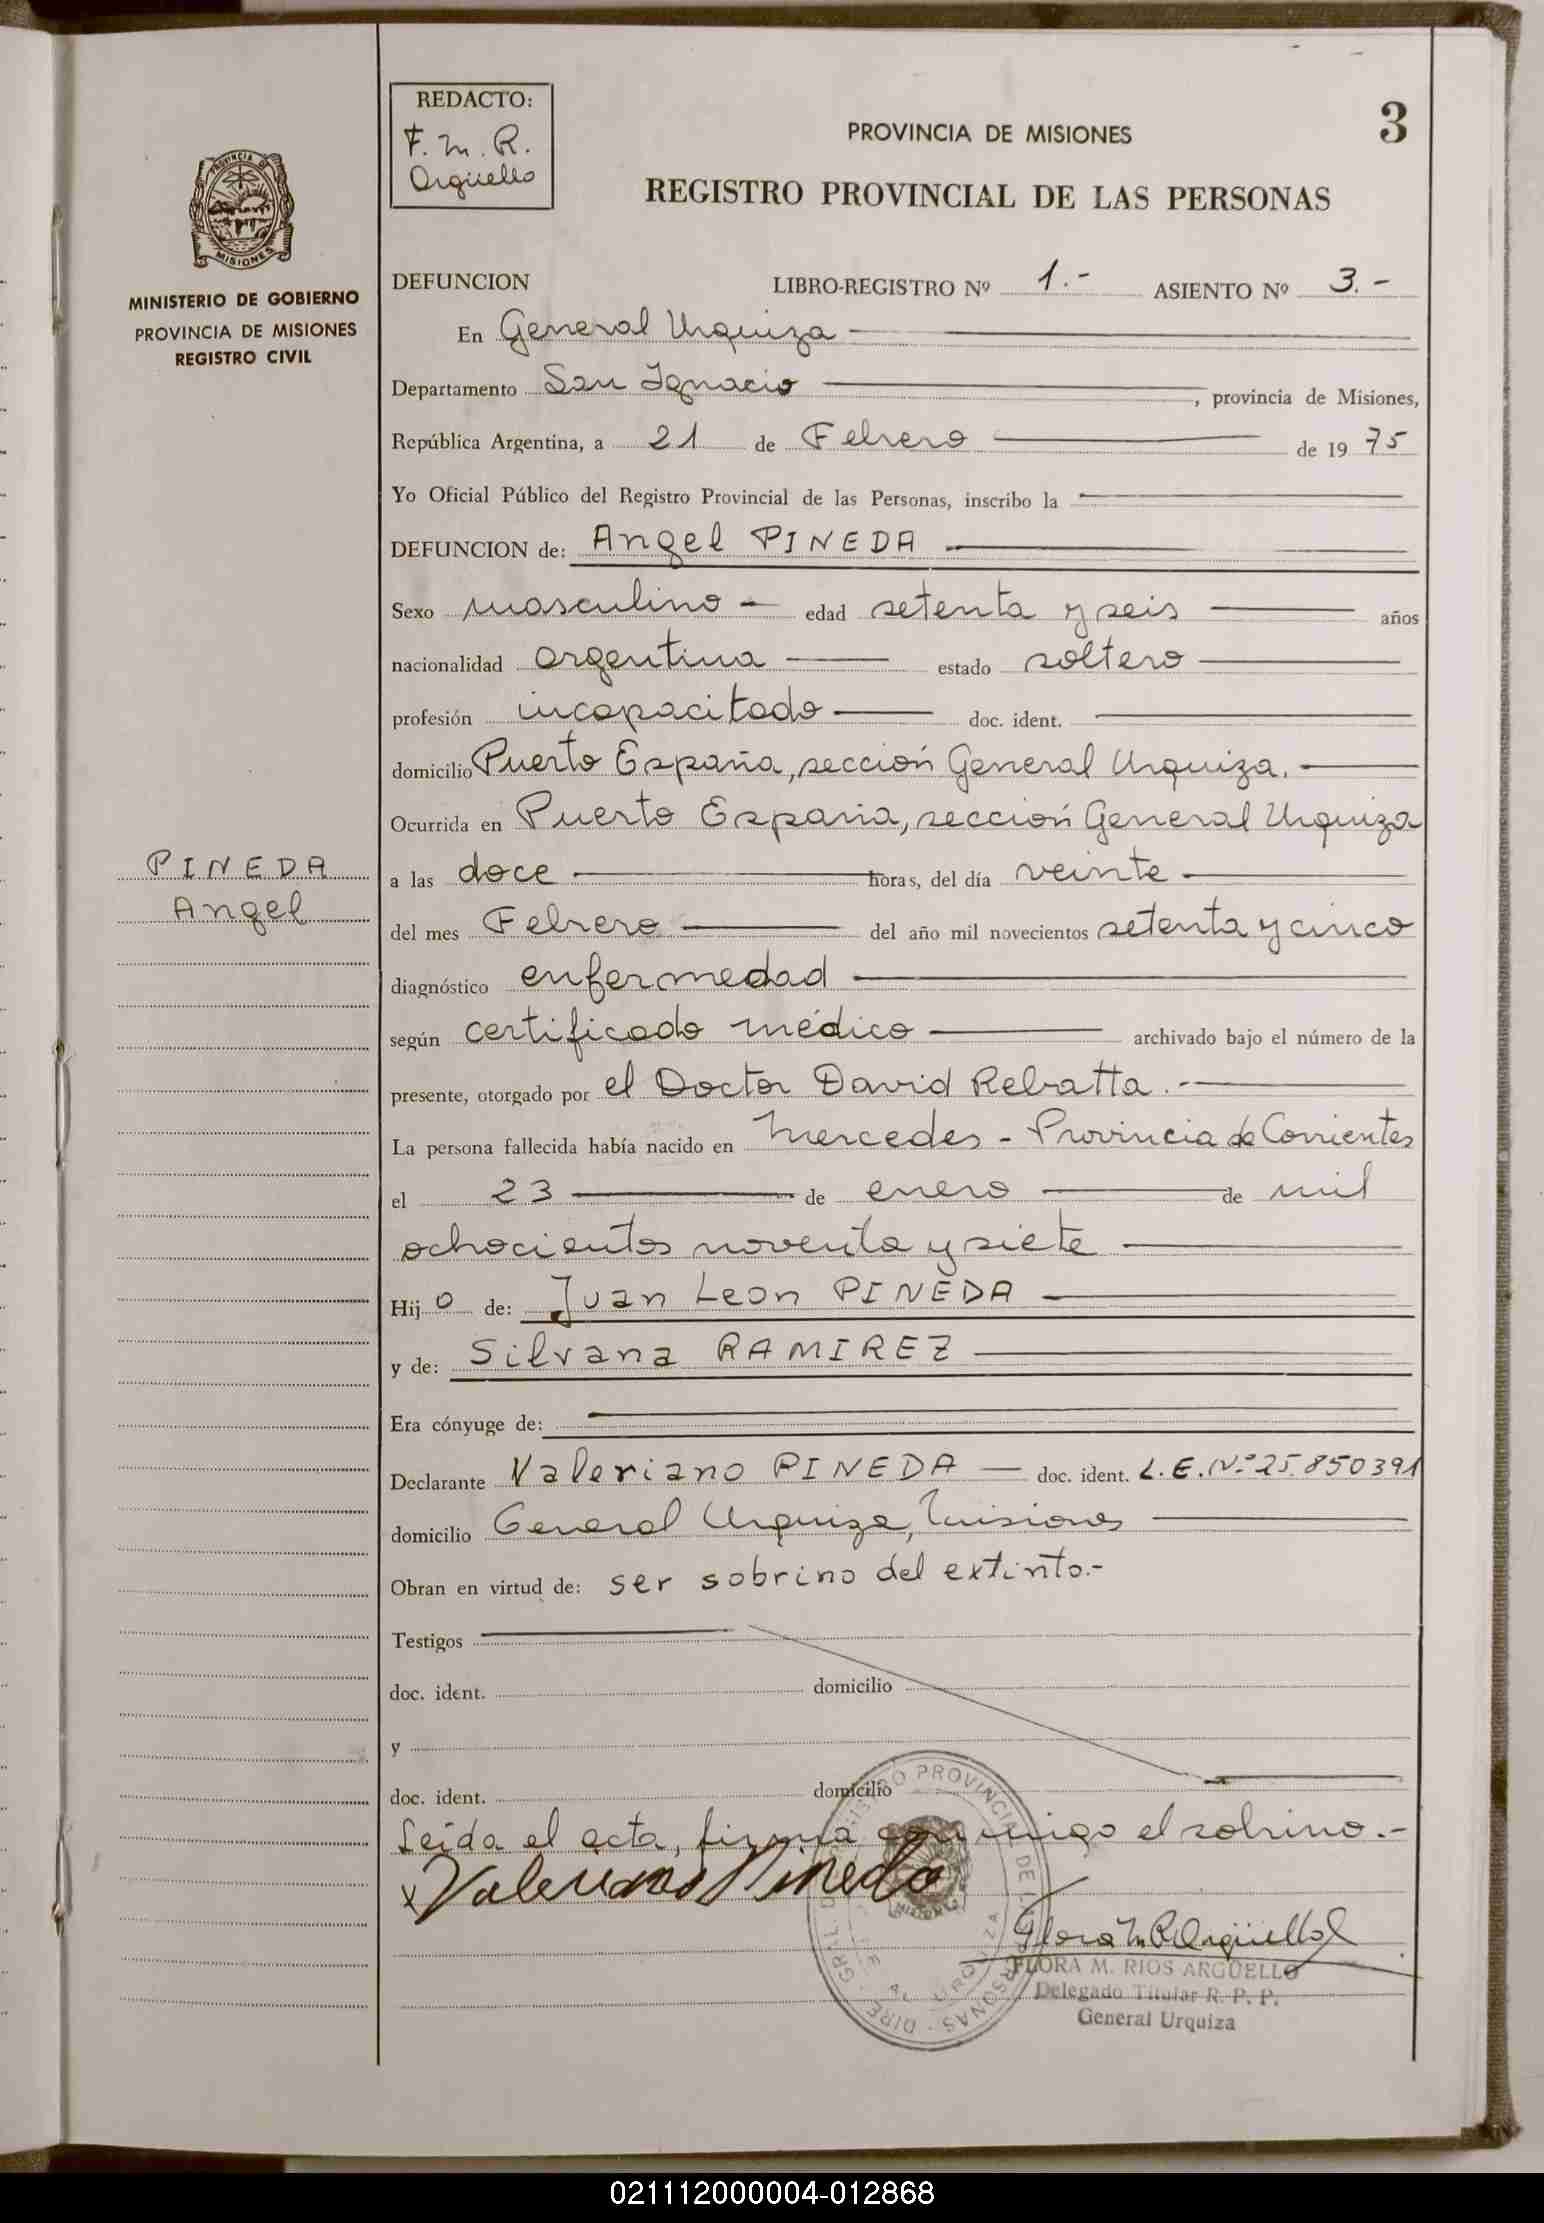 REDACTO:
F. M. R.
Argüello
3
PROVINCIA DE MISIONES
REGISTRO PROVINCIAL DE LAS PERSONAS
PROVINCIA DE
MISIONES
MINISTERIO DE GOBIERNO
PROVINCIA DE MISIONES
REGISTRO CIVIL
PINEDA
Angel
DEFUNCION LIBRO-REGISTRO Nº 1.- ASIENTO Nº 3.-
En General Urquiza
Departamento San Ignacio, provincia de Misiones,
República Argentina, a 21 de Febrero de 1975
Yo Oficial Público del Registro Provincial de las Personas, inscribo la
DEFUNCION de: Angel PINEDA
Sexo masculino - edad setenta y seis años
nacionalidad argentina estado soltero
profesión incapacitado doc. ident.
domicilio Puerto España, sección General Urquiza.
Ocurrida en Puerto España, sección General Urquiza
a las doce horas, del día veinte
del mes Febrero del año mil novecientos setenta y cinco
diagnóstico enfermedad
según certificado médico archivado bajo el número de la
presente, otorgado por el Doctor David Rebatta.-
La persona fallecida había nacido en Mercedes - Provincia de Corrientes
el 23 de enero de mil
ochocientos noventa y siete
Hijo de: Juan Leon PINEDA
y de: Silvana RAMIREZ
Era cónyuge de:
Declarante Valeriano PINEDA doc. ident. L.E.Nº 25.850391
domicilio General Urquiza, Misiones
Obran en virtud de: ser sobrino del extinto.-
Testigos
doc. ident. domicilio
y
doc. ident. domicilio
Leida el acta, firma conmigo el sobrino.-
x Valeriano Pineda
Flora M R Argüello
FLORA M. RIOS ARGÜELLO
Delegado Titular R. P. P.
General Urquiza
021112000004-012868